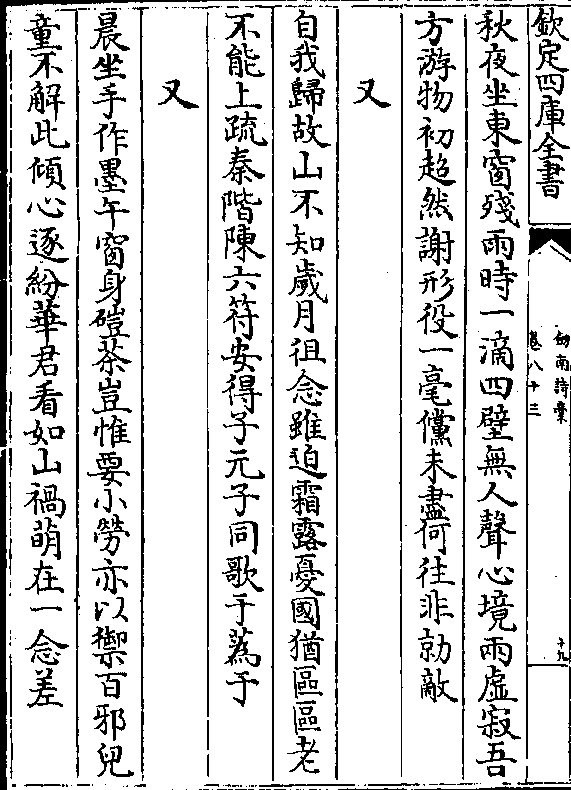 欽定四庫全書
劍南詩稾
卷八十三
十九
秋夜坐東窗殘雨時一滴四壁無人聲心境兩虛寂吾
方游物初超然謝形役一毫儻未盡何往非勍敵
又
自我歸故山不知歲月徂念雖迫霜露憂國猶區區老
不能上疏泰階陳六符安得子元子同歌于蔿于
又
晨坐手作墨午窗身磑茶豈惟要小勞亦以禦百邪兒
童不解此傾心逐紛華君看如山禍萌在一念差